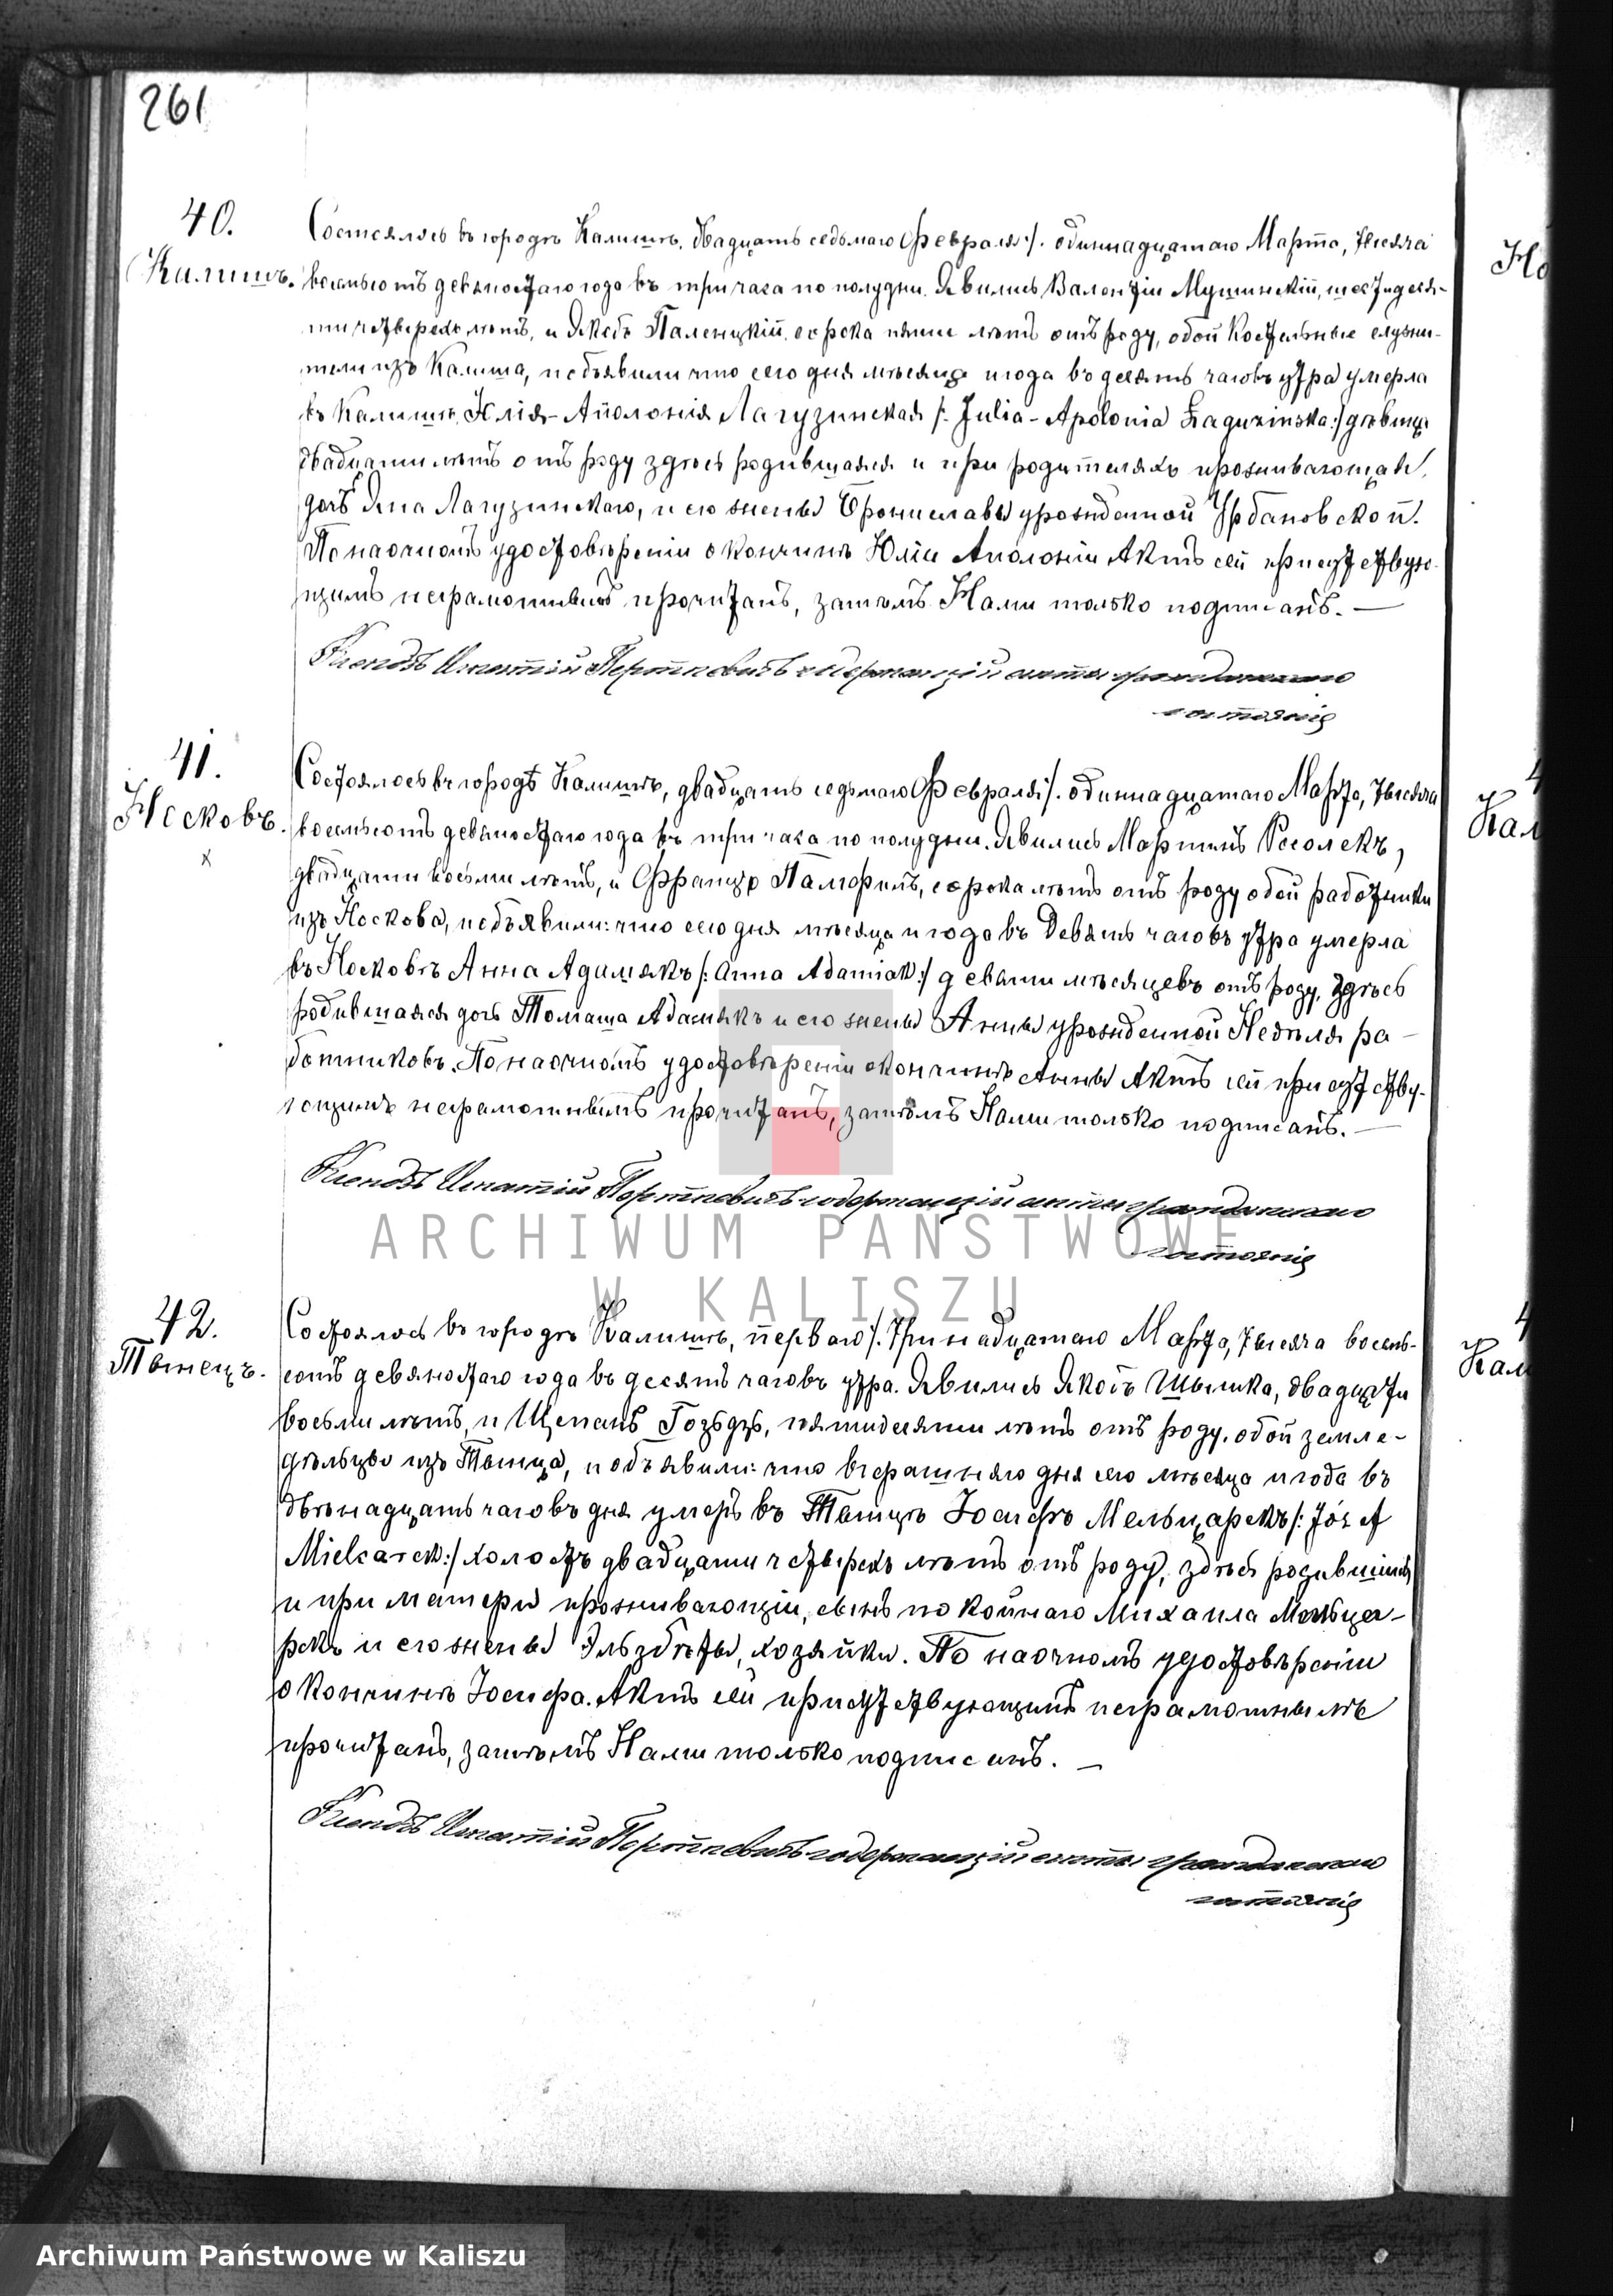 261
40.
Калишъ.
Состоялось въ городѣ Калишѣ, двадцать седьмаго Февраля /. одиннадцатаго Марта, тысяча
восемьсотъ девяностаго года въ три часа по полудни. Явились Валентій Мушинскій, шестидеся-
ти четырехъ лѣтъ, и Якобъ Паленцкій, сорока пяти лѣтъ отъ роду, обои Костельные служи-
тели изъ Калиша, и объявили что сего дня мѣсяца и года въ десять часовъ утра умерла
въ Калишѣ, Юлія-Аполонія Лагузинская /: Julia-Apolonia Łaguzinska:/ дѣвица
двадцати лѣтъ отъ роду здѣсь родившаяся и при родителяхъ проживающая,
дочь Яна Лагузинскаго, и его жены Брониславы урожденной Урбановской.
По наочномъ удостовѣреніи о кончинѣ Юліи Аполоніи Актъ сей присутствую-
щимъ неграмотнымъ прочитанъ, затѣмъ Нами только подписанъ. —
Ксендзъ Игнатій содержащій акты гражданскаго
состоянія
41.
Носковъ.
x
Состоялось въ городѣ Калишѣ, двадцать седьмаго Февраля /. одиннадцатаго Марта, тысяча
восемьсотъ девяностаго года въ три часа по полудни. Явились Мартинъ Росолекъ,
двадцати восьми лѣтъ, и Францъ Паморинъ, сорока лѣтъ отъ роду обои работники
изъ Носкова, и объявили: что сего дня мѣсяца и года въ девять часовъ утра умерла
въ Носковѣ Анна Адамякъ /: Anna Adamiak:/ девяти мѣсяцевъ отъ роду, здѣсь
родившаяся дочь Томаша Адамякъ и его жены Анны урожденной Недзеля ра-
ботниковъ. По наочномъ удостовѣреніи о кончинѣ Анны Актъ сей присутству-
ющимъ неграмотнымъ прочитанъ, затѣмъ Нами только подписанъ. —
Ксендзъ Игнатій содержащій акты гражданскаго
состоянія
42.
Тынецъ.
Состоялось въ городѣ Калишѣ, перваго /. тринадцатаго Марта, тысяча восемь-
сотъ девяностаго года въ десять часовъ утра. Явились Якобъ Шымка, двадцати
восьми лѣтъ, и Щепанъ Гозьдзь, пятидесяти лѣтъ отъ роду, обои земле-
дѣльцы изъ Тынца, и объявили: что вчерашняго дня сего мѣсяца и года въ
двѣнадцать часовъ дня умеръ въ Тынцѣ Іосифъ Мельцарекъ /: Józef
Mielcarek:/ холостъ двадцати четырехъ лѣтъ отъ роду, здѣсь родившійся
и при матери проживающій, сынъ покойнаго Михаила Мельца-
рекъ и его жены Эльзбѣты, хозяйки. По наочномъ удостовѣреніи
о кончинѣ Іосифа. Актъ сей присутствующимъ неграмотнымъ
прочитанъ, затѣмъ Нами только подписанъ. —
Ксендзъ Игнатій содержащій акты гражданскаго
состоянія
Но
Кал
Кал
ARCHIWUM PAŃSTWOWE
W KALISZU
Archiwum Państwowe w Kaliszu